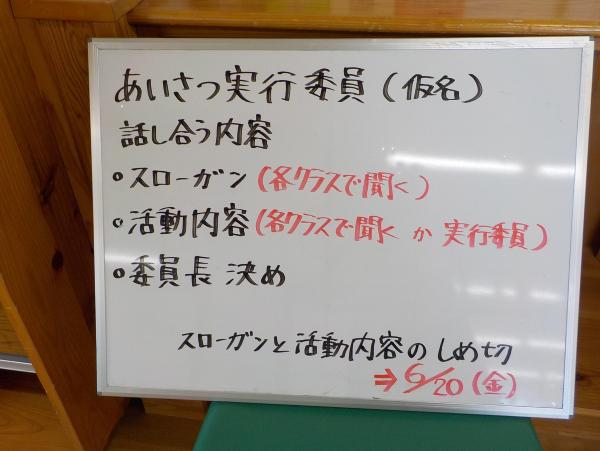 あいさつ実行委員(仮名)
話し合う内容
・スローガン(各クラスで聞く)
・活動内容(各クラスで聞くか実行委員)
・委員長決め
スローガンと活動内容のしめ切
⇒6/20(金)